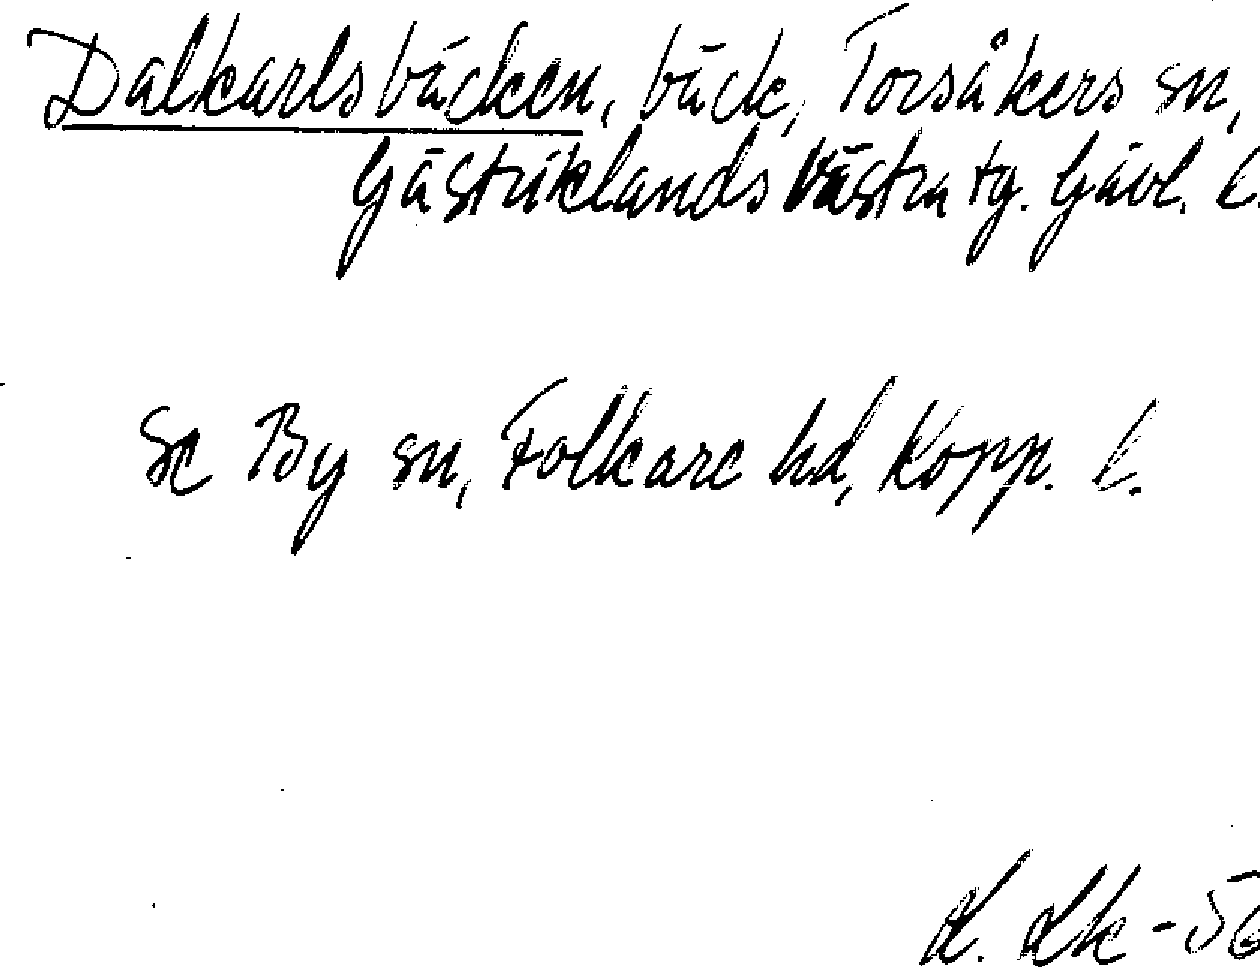 Dalkarlsbäcken, bäck, Torsåkers sn,
Gästriklands västra tg. Gävl. l.
Se By sn, Folkare hd, Kopp. l.
-56